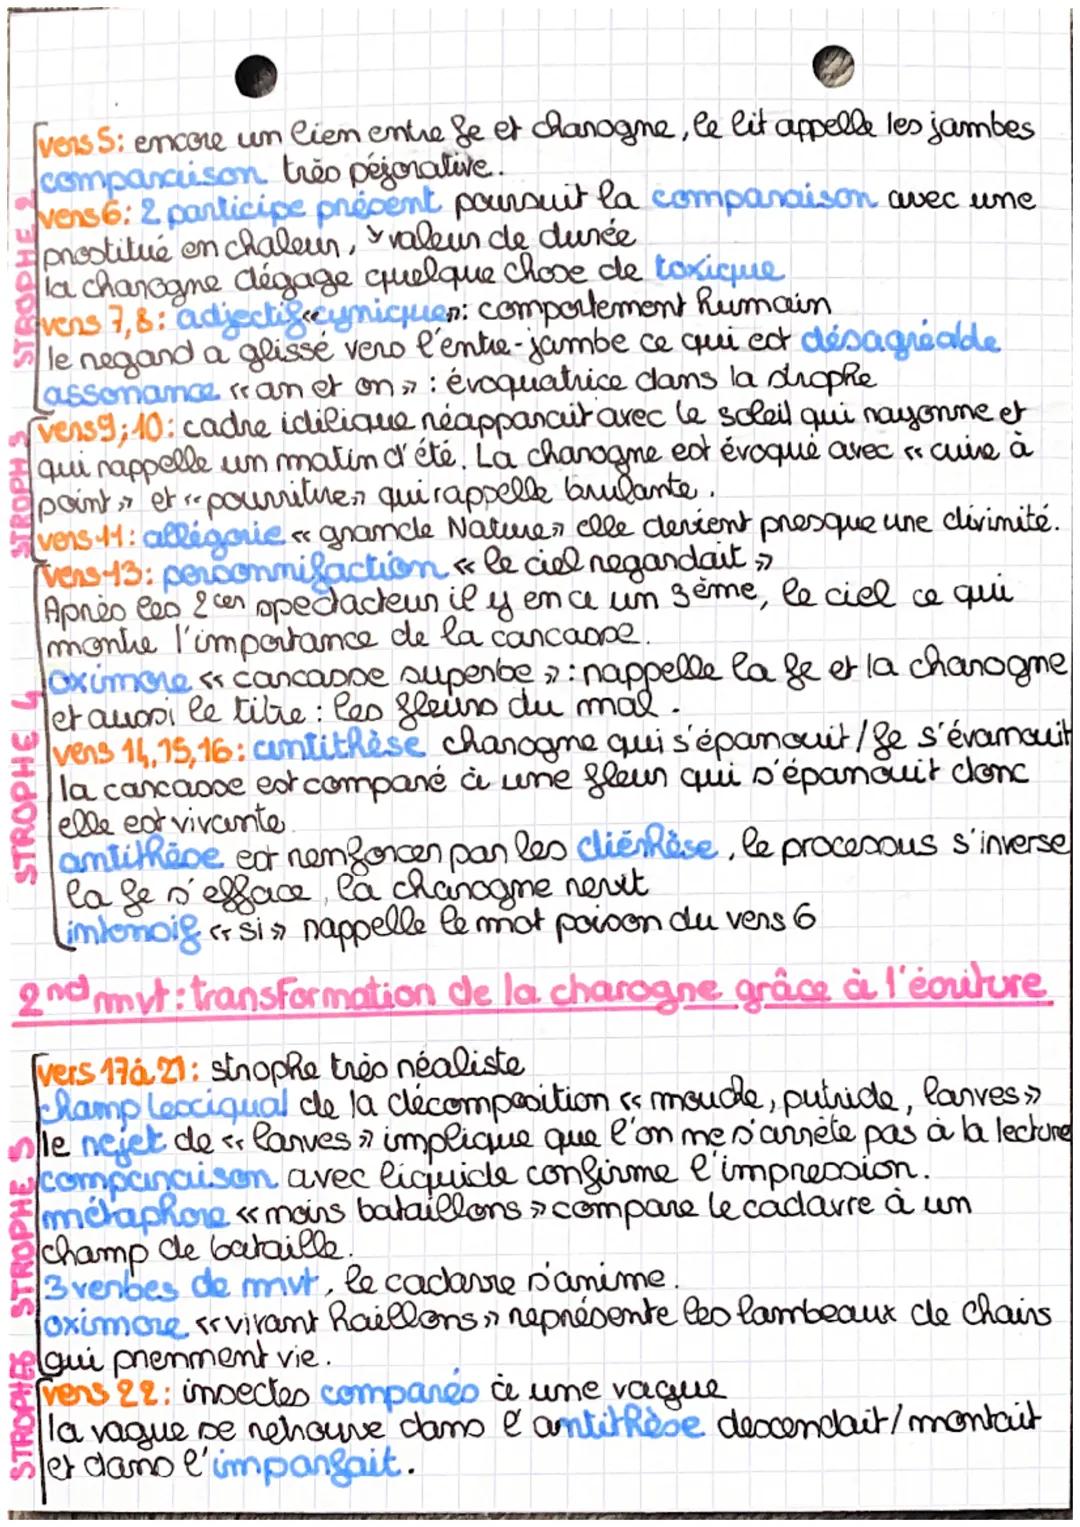 STROPHE 2
vers 5: encore un lien entre fe et charogne, le lit appelle les jambes
comparaison très péjorative.
vers 6: 2 participe présent poursuit la comparaison avec une
prostitué en chaleur, valeur de durée
la charogne dégage quelque chose de toxique
vers 7,8: adjectif «cynique»: comportement humain
le regard a glissé vers l'entre-jambe ce qui est désagréable
assonance «an et on»: évoquatrice dans la strophe
STROPH 3
vers 9; 10: cadre idilique réapparait avec le soleil qui rayonne et
qui rappelle un matin d'été. La charogne est évoqué avec «cuire à
point» et «pourriture» qui rappelle brulante.
vers 11: allégorie «grande Nature» elle devient presque une divinité.
STROPHE 4
vers 13: personnifaction «le ciel regardait»
Après les 2 er spectacteur il y en a un 3ème, le ciel ce qui
montre l'importance de la carcasse.
oximore «carcasse superbe»: rappelle la fe et la charogne
et aussi le titre: les fleurs du mal.
vers 14, 15, 16: antithèse charogne qui s'épanouit/fe s'évanouit
la carcasse est comparé à une fleur qui s'épanouit donc
elle est vivante
antithèse est renforcer par les diérhèse, le processus s'inverse
la fe s'efface, la charogne revit
intensif «si» rappelle le mot poison du vers 6
2nd mvt: transformation de la charogne grâce à l'écriture
STROPHES STROPHE 5
vers 17 à 21: strophe très réaliste
champ lexciqual de la décomposition «mouche, putride, larves»
le rejet de «larves» implique que l'on ne s'arrête pas à la lecture
comparaison avec liquide confirme l'impression.
métaphore «noirs bataillons» compare le cadavre à un
champ de bataille.
3 verbes de mvt, le cadavre s'anime.
oximore «vivant haillons» représente les lambeaux de chairs
qui prennment vie.
vers 22: insectes comparés à une vague
la vague se retrouve dans l'antithèse descendait/montait
et dans l'imparfait.